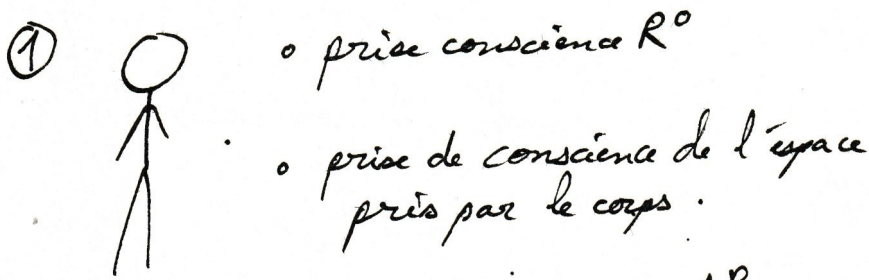 ① • prise conscience R°
• prise de conscience de l'espace
pris par le corps.